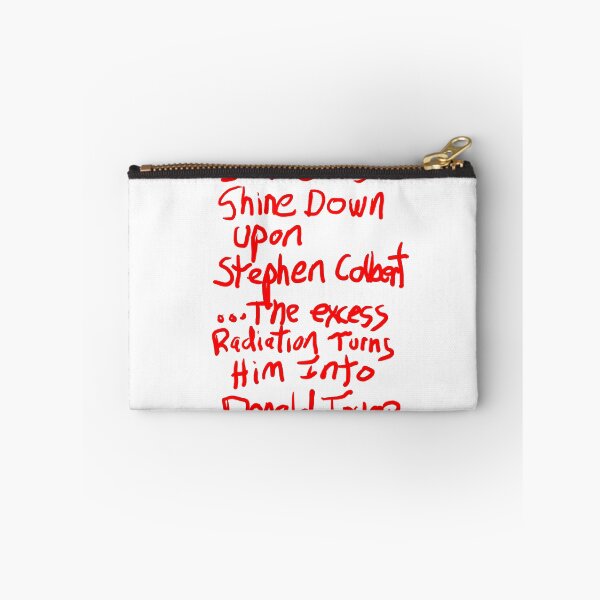 Shine Down
upon
Stephen Colbert
...The excess
Radiation Turns
Him Into
Donald